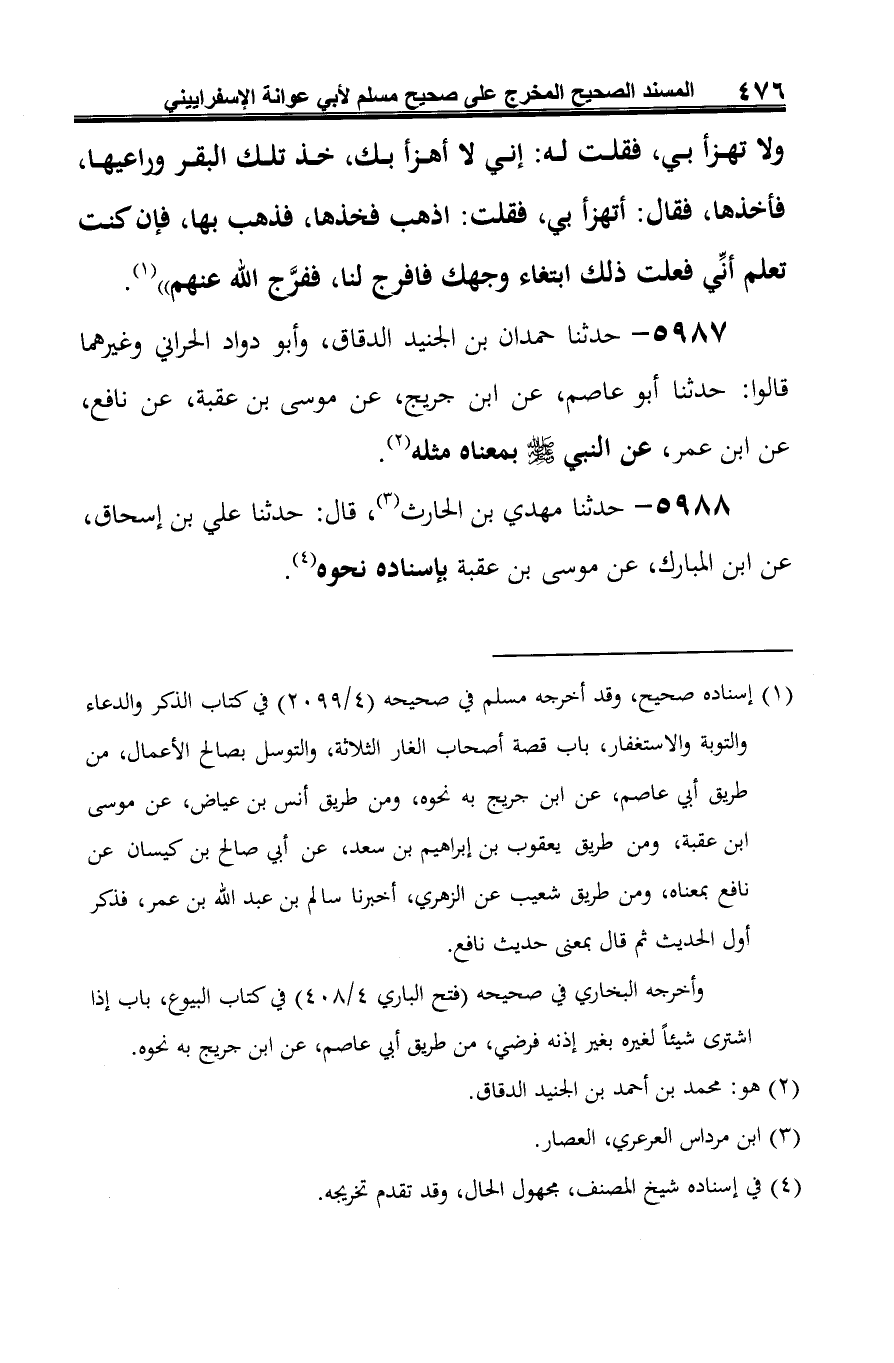 ٤٧٦ المسند الصحيح المخرج على صحيح مسلم لأبي عوانة الإسفراييني
ولا تهزأ بي، فقلت له: إني لا أهزأ بك، خذ تلك البقر وراعيها،
فأخذها، فقال: أتهزأ بي، فقلت: اذهب فخذها، فذهب بها، فإن كنت
تعلم أنِّي فعلت ذلك ابتغاء وجهك فافرج لنا، ففرَّج الله عنهم))(١).
٥٩٨٧- حدثنا حمدان بن الجنيد الدقاق، وأبو دواد الحراني وغيرهما
قالوا: حدثنا أبو عاصم، عن ابن جريج، عن موسى بن عقبة، عن نافع،
عن ابن عمر، عن النبي ﷺ بمعناه مثله(٢).
٥٩٨٨- حدثنا مهدي بن الحارث(٣)، قال: حدثنا علي بن إسحاق،
عن ابن المبارك، عن موسى بن عقبة بإسناده نحوه(٤).
(١) إسناده صحيح، وقد أخرجه مسلم في صحيحه (٢٠٩٩/٤) في كتاب الذكر والدعاء
والتوبة والاستغفار، باب قصة أصحاب الغار الثلاثة، والتوسل بصالح الأعمال، من
طريق أبي عاصم، عن ابن جريج به نحوه، ومن طريق أنس بن عياض، عن موسى
ابن عقبة، ومن طريق يعقوب بن إبراهيم بن سعد، عن أبي صالح بن كيسان عن
نافع بمعناه، ومن طريق شعيب عن الزهري، أخبرنا سالم بن عبد الله بن عمر، فذكر
أول الحديث ثم قال بمعنى حديث نافع.
وأخرجه البخاري في صحيحه (فتح الباري ٤٠٨/٤) في كتاب البيوع، باب إذا
اشترى شيئاً لغيره بغير إذنه فرضي، من طريق أبي عاصم، عن ابن جريج به نحوه.
(٢) هو: محمد بن أحمد بن الجنيد الدقاق.
(٣) ابن مرداس العرعري، العصار.
(٤) في إسناده شيخ المصنف، مجهول الحال، وقد تقدم تخريجه.